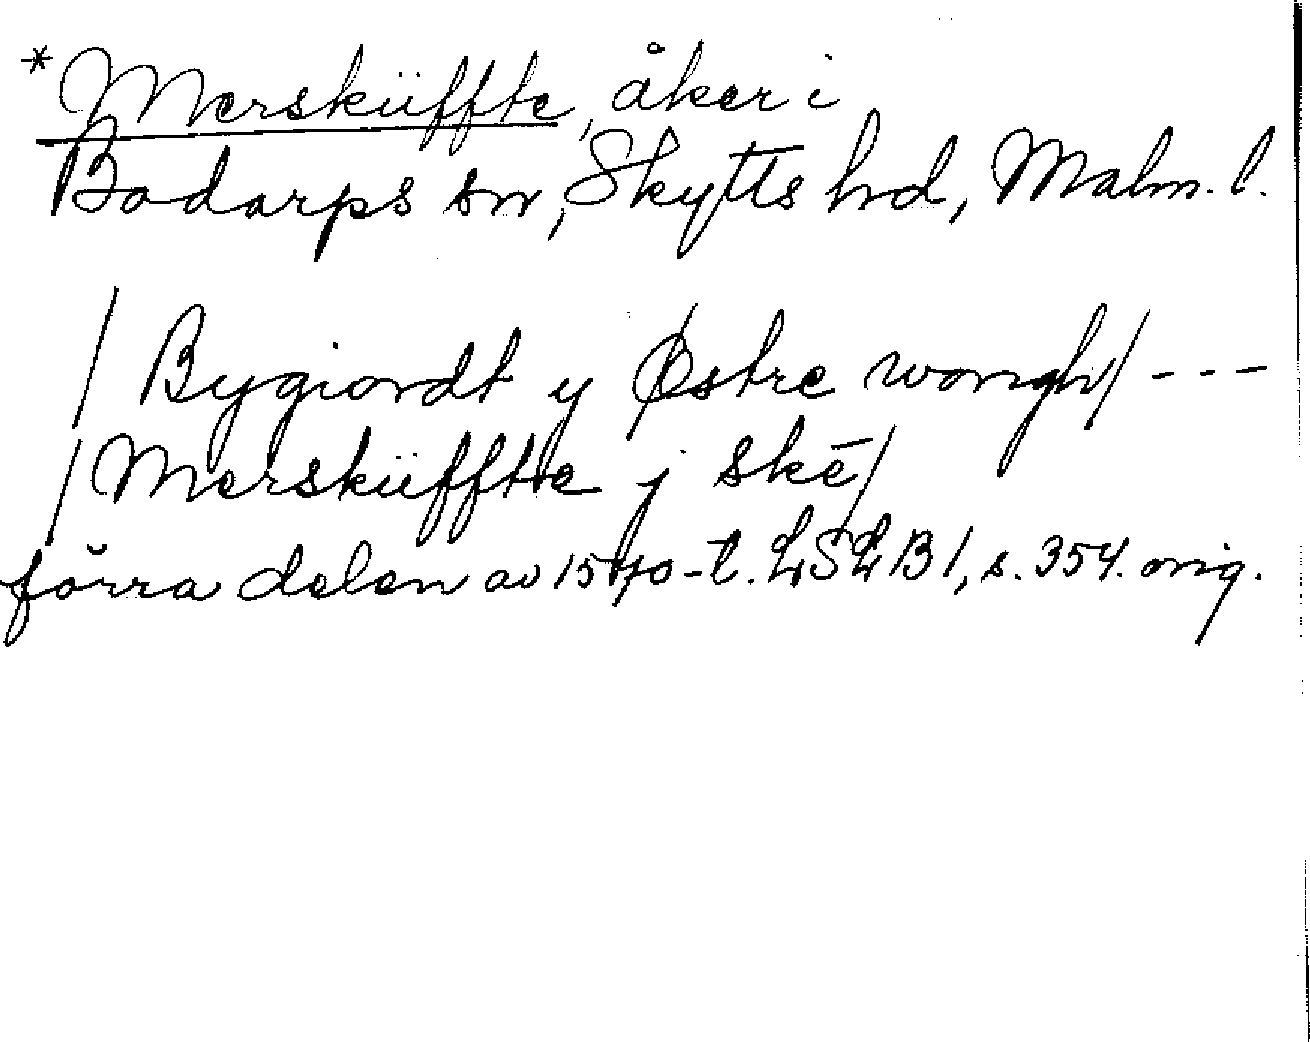 *Merskiiffte, åker i
Bodarps sn, Skytts hd, Malm. l.
/ Bygiordt y Østre wongh / ---
/ Merskiiffte j skē /
förra delen av 1570-t. LSLB1, s. 354. orig.